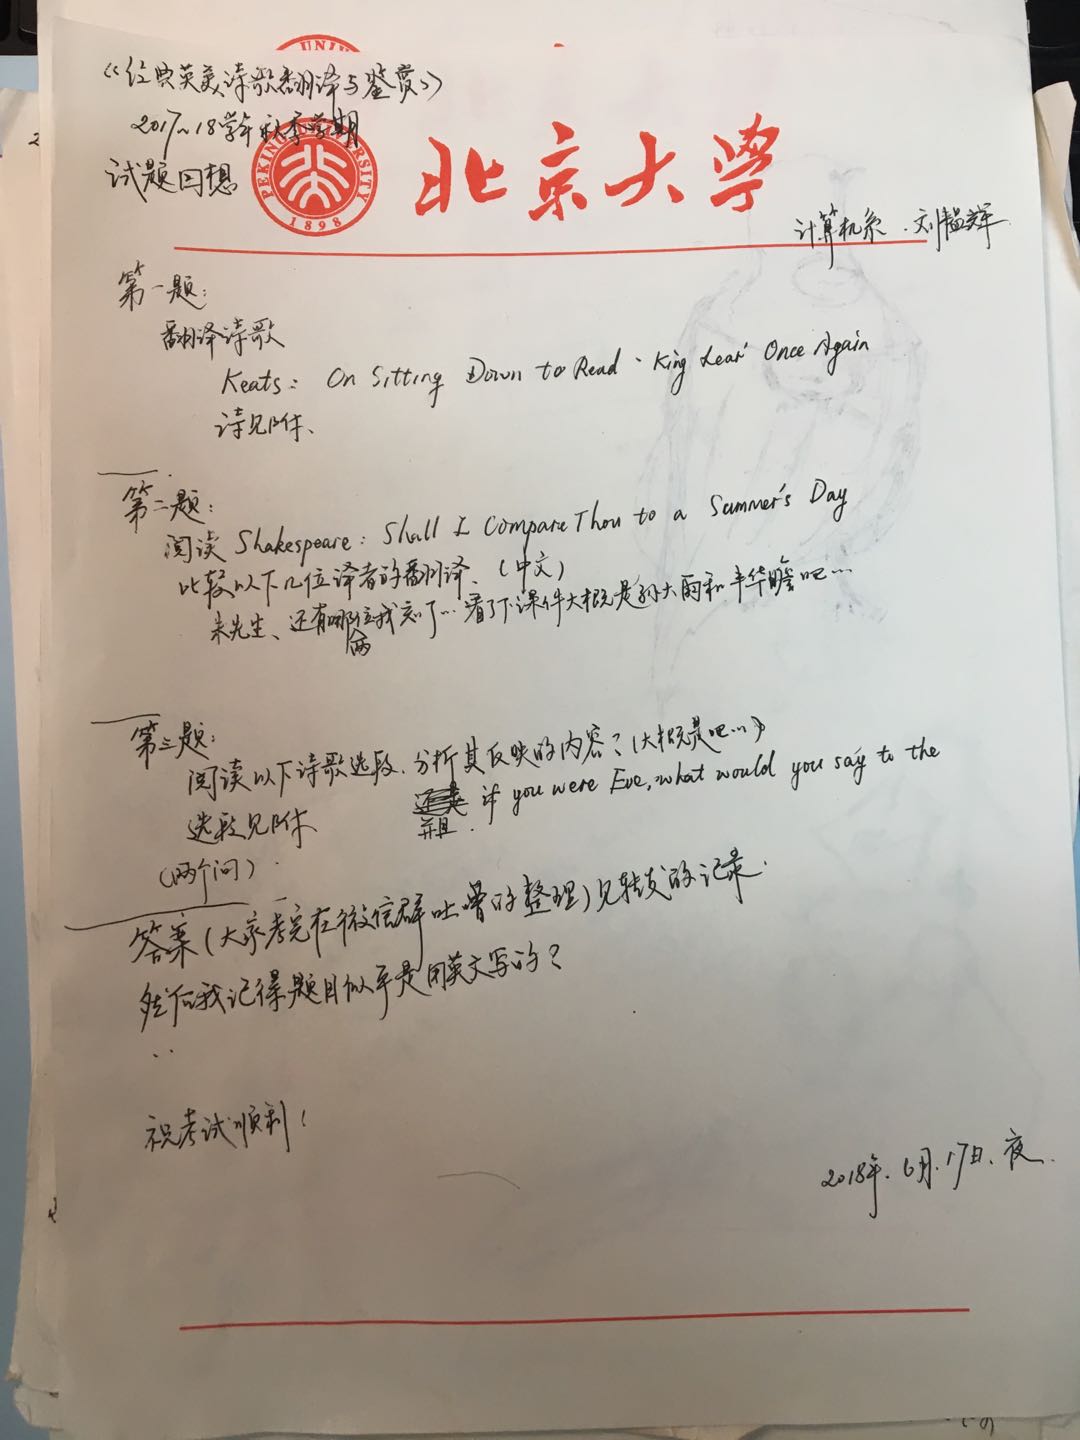 《经典英美诗歌翻译与鉴赏》
2017~18学年秋季学期
试题回想
UNIV
PEKING UNIVERSITY
1898
北京大学
计算机系.刘韫辉
第一题:
翻译诗歌
Keats: On Sitting Down to Read 'King Lear' Once Again
诗见附件、
第二题:
阅读 Shakespeare: Shall I Compare Thou to a Summer's Day
比较以下几位译者的翻译、(中文)
朱先生、还有哪两位我忘了…看了下课件大概是孙大雨和丰华瞻吧…
第三题:
阅读以下诗歌选段.分析其反映的内容?(大概是吧…)
选段见附件. 并且. if you were Eve, what would you say to the
(两个问)
答案(大家考完在微信群吐嘈的整理)见转发的记录.
然后我记得题目似乎是用英文写的?
祝考试顺利!
2018年.6月.17日.夜.